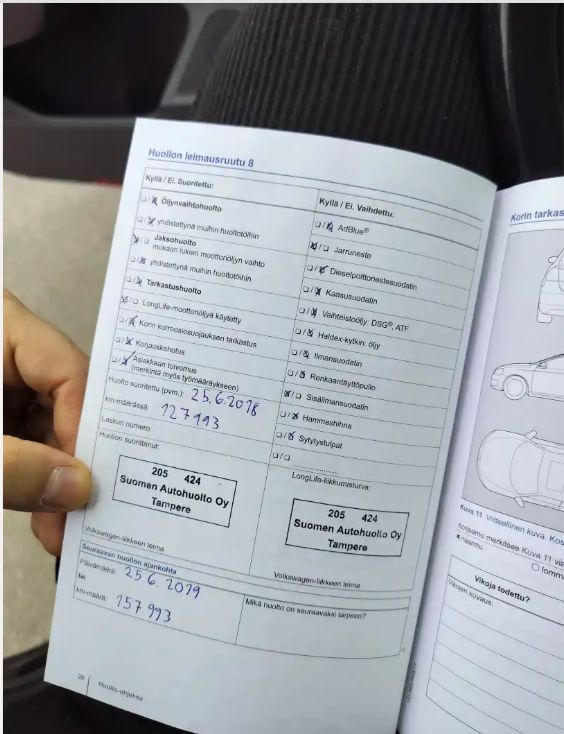 Huollon leimausruutu 8
Kyllä / Ei. Suoritettu:
Öljynvaihtohuolto
yhdistettynä muihin huoltotöihin
Jaksohuolto
mukaan lukien moottoriöljyn vaihto
yhdistettynä muihin huoltotöihin
Tarkastushuolto
LongLife-moottoriöljyä käytetty
Korin korroosiosuojauksen tarkastus
Korjauskehotus
Asiakkaan toivomus
(merkintä myös työmääräykseen)
Huolto suoritettu (pvm.): 25.6.2018
km-määrässä: 127993
Laskun numero:
Huollon suorittanut:
205 424
Suomen Autohuolto Oy
Tampere
Volkswagen-liikkeen leima
Kyllä / Ei. Vaihdettu:
AdBlue®
Jarruneste
Dieselpolttonestesuodatin
Kaasusuodatin
Vaihteistoöljy: DSG®, ATF
Haldex-kytkin: öljy
Ilmansuodatin
Renkaantäyttöpullo
Sisäilmansuodatin
Hammashihna
Sytytystulpat
LongLife-liikkumisturva:
205 424
Suomen Autohuolto Oy
Tampere
Volkswagen-liikkeen leima
Seuraavan huollon ajankohta
Päivämäärä: 25.6.2019
tai
km-määrä: 157993
Mikä huolto on seuraavaksi tarpeen?
28 | Huolto-ohjelma
Korin tarkas
Kuva 11 Viitteellinen kuva. Kos
Korjaamo merkitsee Kuva 11 via
naarmu
lomm
Vikoja todettu?
Vikojen kuvaus: